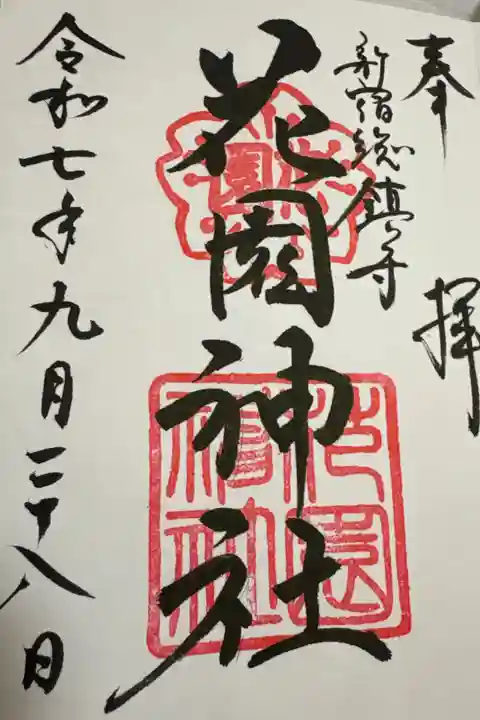 奉拝
新宿総鎮守
花園神社
令和七年九月二十八日